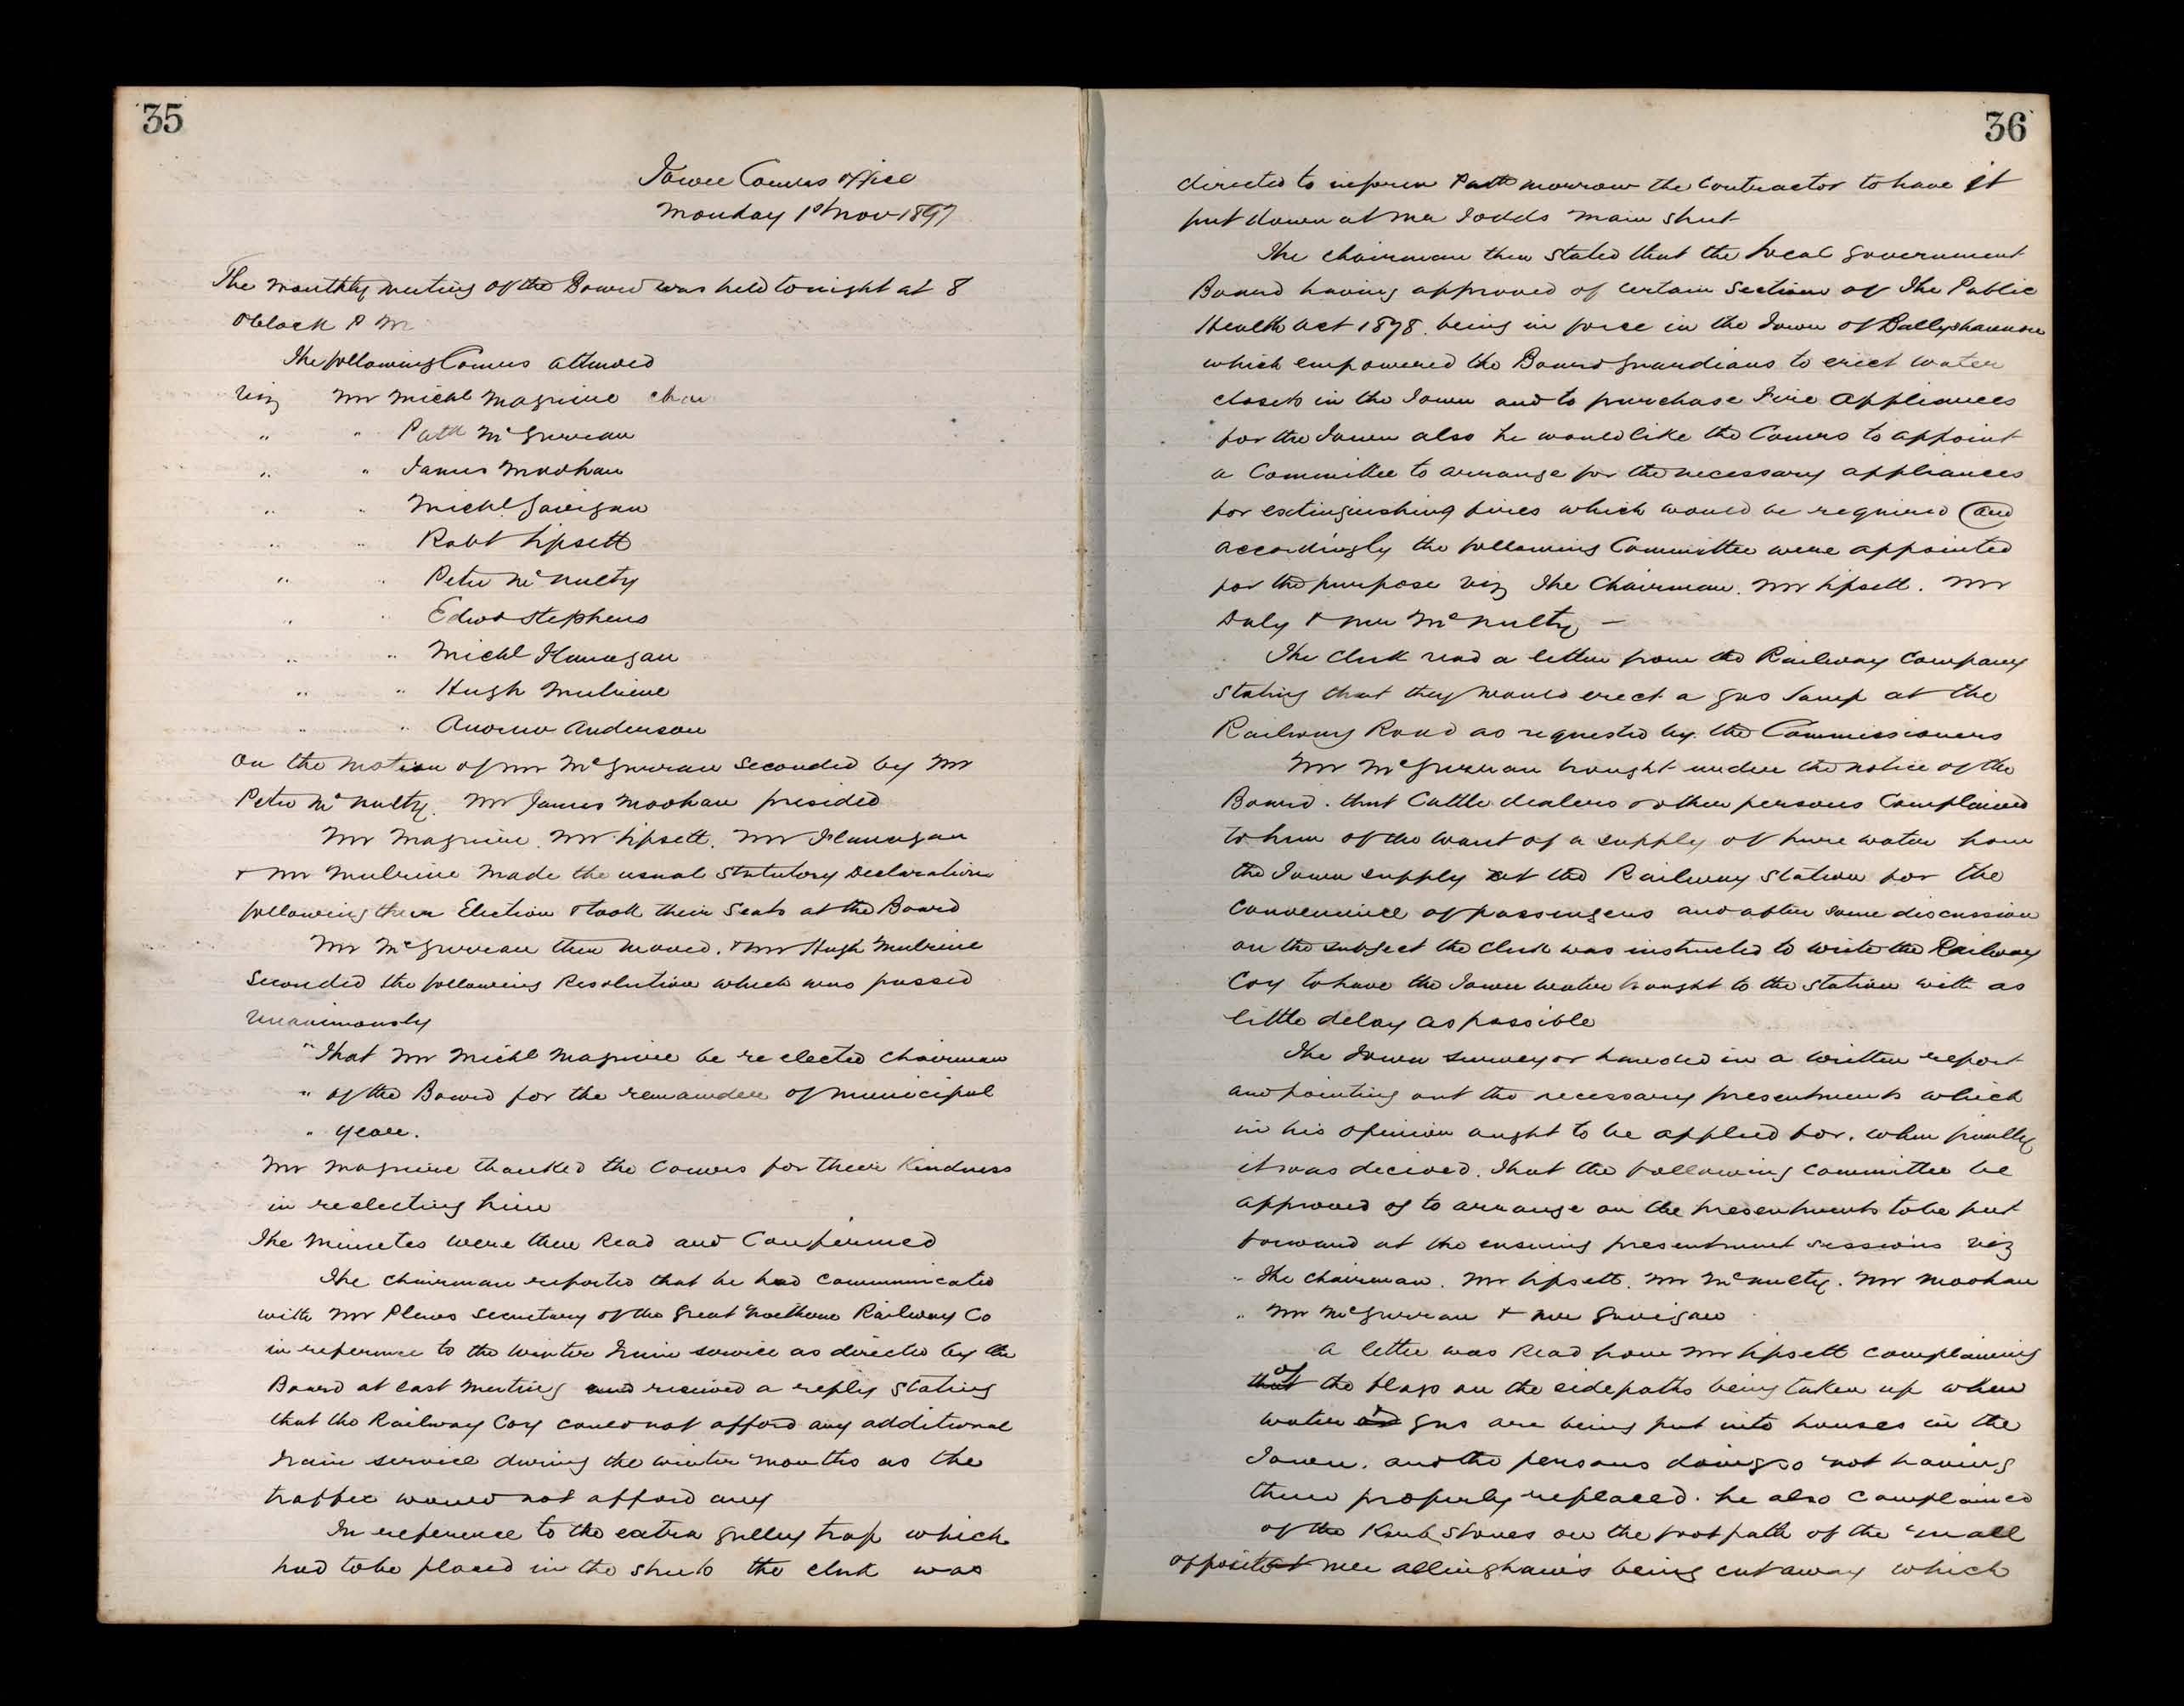 35
Town Comrs office
Monday 1st Nov 1897
The monthly meeting of the Board was held tonight at 8
Oclock P M
The following Comrs attended
Viz Mr Michl Maguire Chair
" " Patk McGurran
" " James Moohan
" " Michl Gavigan
" " Robt Lipsett
" " Peter McNulty
" " Edwd Stephens
" " Michl Flanagan
" " Hugh Mulrine
" " Andrew Anderson
On the motion of Mr McGurran seconded by Mr
Peter McNulty. Mr James Moohan presided
Mr Maguire. Mr Lipsett. Mr Flanagan
& Mr Mulrine made the usual Statutory Declaration
following their Election & took their Seats at the Board
Mr McGurran then moved. & Mr Hugh Mulrine
Seconded the following Resolution which was passed
Unanimously
"That Mr Michl Maguire be re elected Chairman
" of the Board for the remainder of municipal
" year.
Mr Maguire thanked the Comrs for their Kindness
in reelecting him
The Minutes were then Read and Confirmed
The Chairman reported that he had communicated
with Mr Plews Secretary of the Great Northern Railway Co
in reference to the Winter Train service as directed by the
Board at last meeting and received a reply stating
that the Railway Coy could not afford any additional
Train service during the winter months as the
traffic would not afford any
In reference to the extra gulley trap which
had to be placed in the streets the clerk was
36
directed to inform Patk Morrow the Contractor to have it
put down at Mr Dodds Main Street
The Chairman then Stated that the Local Government
Board having approved of certain Sections of The Public
Health Act 1878. being in force in the Town of Ballyshannon
which empowered the Board Guardians to erect water
closets in the Town and to purchase Fire Appliances
for the Town also he would like the Comrs to appoint
a Committee to arrange for the necessary appliances
for extinguishing fires which would be required and
accordingly the following Committee were appointed
for the purpose viz The Chairman. Mr Lipsett. Mr
Daly & Mr McNulty –
The Clerk read a letter from the Railway Company
Stating that they would erect a gas Lamp at the
Railway Road as requested by the Commissioners
Mr McGurran brought under the notice of the
Board. that Cattle dealers & other persons Complained
to him of the want of a supply of pure water from
the Town supply at the Railway Station for the
Convenience of passengers and after some discussion
on the subject the Clerk was instructed to write the Railway
Coy to have the Town water brought to the Station with as
little delay as possible
The Town Surveyor handed in a written report
and pointing out the necessary presentments which
in his opinion ought to be applied for. when finally
it was decided. That the following Committee be
approved of to arrange on the presentments to be put
forward at the ensuing presentment sessions viz
" The Chairman. Mr Lipsett. Mr McNulty. Mr Moohan
" Mr McGurran & Mr Gavigan
A letter was Read from Mr Lipsett complaining
that of the flags on the sidepaths being taken up when
water and gas are being put into houses in the
Town. and the persons doing so not having
them properly replaced. he also complained
of the Kurb Stones on the footpath of the Mall
opposite at Mr Allingham's being cut away which